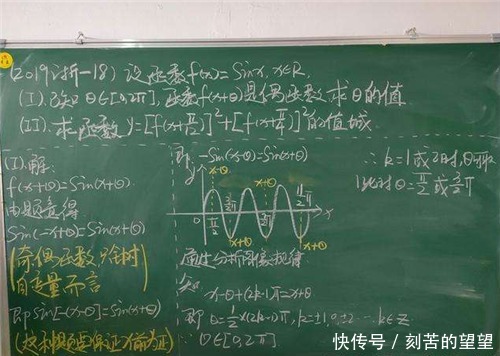 (2019浙-18)设函数f(x)=Sinx, x∈R.
(I).已知θ∈[0,2π],函数f(x+θ)是偶函数求θ的值
(II).求函数y=[f(x+π/12)]²+[f(x+π/4)]²的值域.
(I).解:
f(x+θ)=Sin(x+θ)
由题意得
Sin(-x+θ)=Sin(x+θ)
(奇偶函数只针对
自变量而言
即Sin[-(x-θ)]=Sin(x+θ)
即 -Sin(x-θ)=Sin(x+θ)
y
x-θ
x+θ
x-θ
x+θ
0
x
通过分析图像规律
知
x-θ+(2k-1)π=x+θ
即θ=1/2×(2k-1)π, k=±1,0,±2…k∈Z
∵θ∈[0,2π]
∴k=1或2时,
此时θ=π/2或3/2π
快传号 / 刻苦的望望